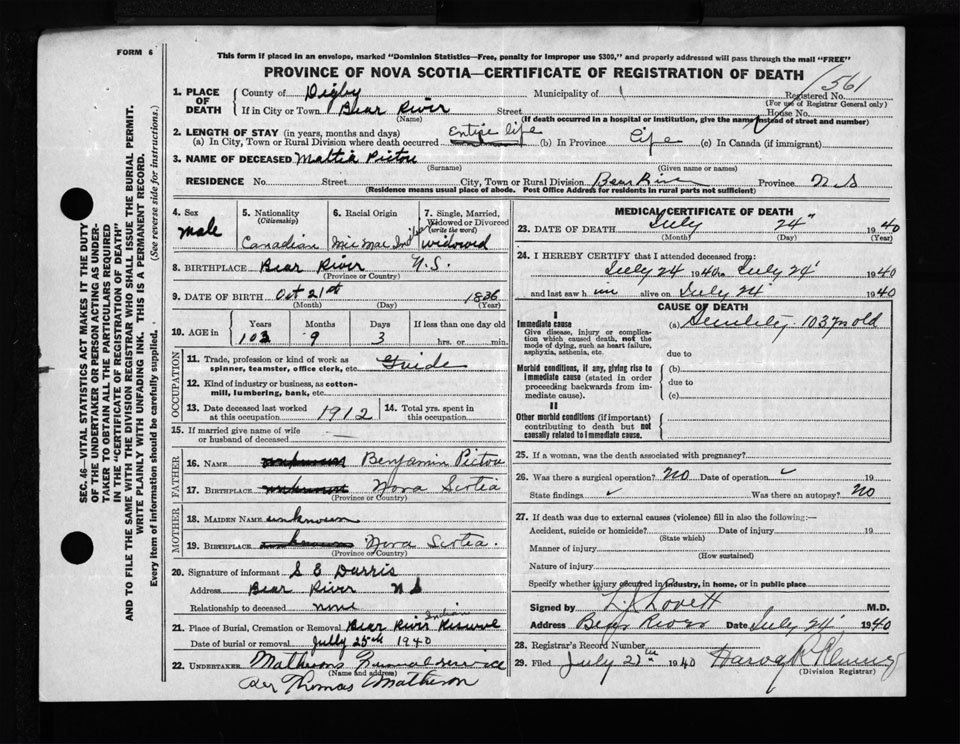 FORM 6
This form if placed in an envelope, marked "Dominion Statistics—Free, penalty for improper use $300," and properly addressed will pass through the mail "FREE"
PROVINCE OF NOVA SCOTIA—CERTIFICATE OF REGISTRATION OF DEATH
561
SEC. 46—VITAL STATISTICS ACT MAKES IT THE DUTY
OF THE UNDERTAKER OR PERSON ACTING AS UNDER-
TAKER TO OBTAIN ALL THE PARTICULARS REQUIRED
IN THE "CERTIFICATE OF REGISTRATION OF DEATH"
AND TO FILE THE SAME WITH THE DIVISION REGISTRAR WHO SHALL ISSUE THE BURIAL PERMIT.
WRITE PLAINLY WITH UNFADING INK. THIS IS A PERMANENT RECORD.
Every item of information should be carefully supplied. (See reverse side for instructions.)
1. PLACE OF DEATH
County of Digby Municipality of Registered No.
(For use of Registrar General only)
If in City or Town Bear River Street House No.
(Name) (If death occurred in a hospital or institution, give the name instead of street and number)
2. LENGTH OF STAY (in years, months and days)
(a) In City, Town or Rural Division where death occurred Entire life (b) In Province Life (c) In Canada (if immigrant)
3. NAME OF DECEASED Pictou
(Surname) (Given name or names)
RESIDENCE No. Street City, Town or Rural Division Bear River Province N S
(Residence means usual place of abode. Post Office Address for residents in rural parts not sufficient)
4. Sex
male
5. Nationality
(Citizenship)
Canadian
6. Racial Origin
Mic Mac Indian
7. Single, Married, Widowed or Divorced
(write the word)
widowed
8. BIRTHPLACE Bear River N.S.
(Province or Country)
9. DATE OF BIRTH Oct 21st 1836
(Month) (Day) (Year)
10. AGE in
Years Months Days If less than one day old
103 9 3 hrs. or min.
OCCUPATION
11. Trade, profession or kind of work as
spinner, teamster, office clerk, etc. Guide
12. Kind of industry or business, as cotton-
mill, lumbering, bank, etc.
13. Date deceased last worked
at this occupation 1912
14. Total yrs. spent in
this occupation
15. If married give name of wife
or husband of deceased
FATHER
16. NAME Benjamin Pictou
17. BIRTHPLACE Nova Scotia
(Province or Country)
MOTHER
18. MAIDEN NAME unknown
19. BIRTHPLACE Nova Scotia.
(Province or Country)
20. Signature of informant
Address Bear River N S
Relationship to deceased none
21. Place of Burial, Cremation or Removal Bear River Indian Reserve
Date of burial or removal July 25th 1940
22. UNDERTAKER Mathesons Funeral service
(Name and address)
Per Thomas Matheson
MEDICAL CERTIFICATE OF DEATH
23. DATE OF DEATH July 24" 1940
(Month) (Day) (Year)
24. I HEREBY CERTIFY that I attended deceased from:
July 24 1940 to July 24 1940
and last saw him alive on July 24 1940
CAUSE OF DEATH
I
Immediate cause
Give disease, injury or complica-
tion which caused death, not the
mode of dying, such as heart failure,
asphyxia, asthenia, etc.
(a) 103 yrs old
due to
Morbid conditions, if any, giving rise to
immediate cause (stated in order
proceeding backwards from im-
mediate cause).
(b)
due to
(c)
II
Other morbid conditions (if important)
contributing to death but not
causally related to immediate cause.
25. If a woman, was the death associated with pregnancy?
26. Was there a surgical operation? No Date of operation
State findings Was there an autopsy? No
27. If death was due to external causes (violence) fill in also the following:—
Accident, suicide or homicide? Date of injury 19
(State which)
Manner of injury
(How sustained)
Nature of injury
Specify whether injury occurred in industry, in home, or in public place
Signed by L. J. Lovett M.D.
Address Bear River Date July 24 1940
28. Registrar's Record Number
29. Filed July 1940
(Division Registrar)